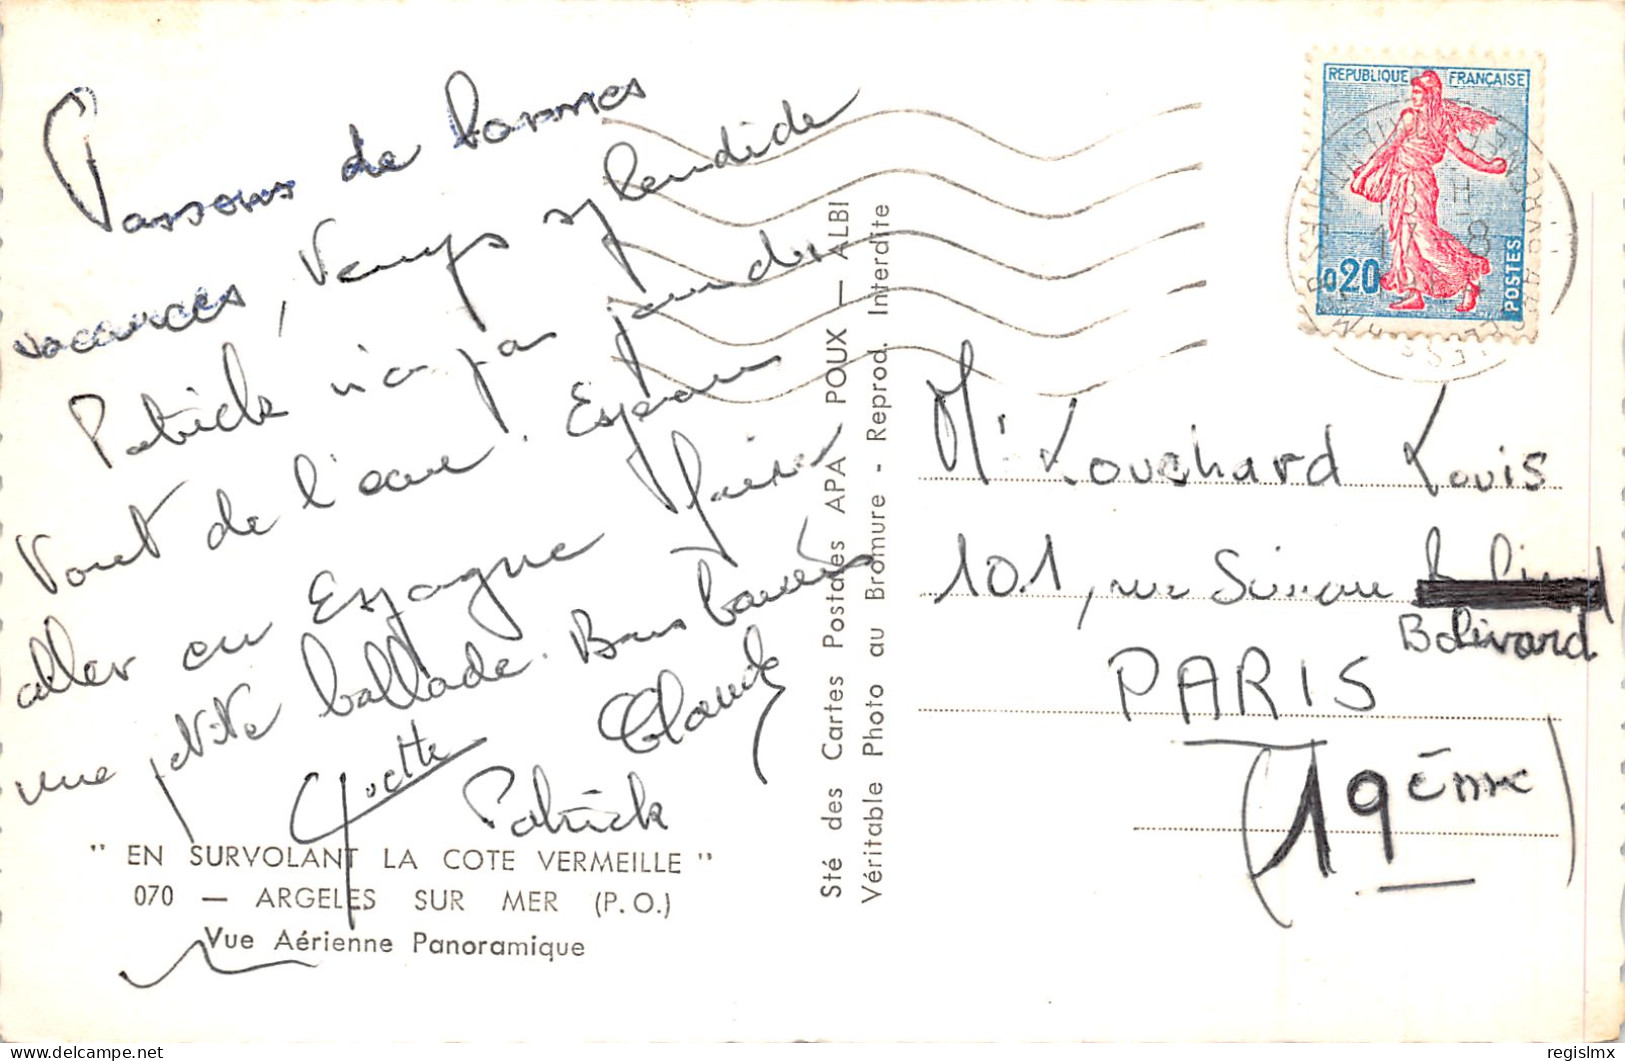 Passons de bonnes
vacances, Temps splendide
Patrick n'a pas peur du
tout de l'eau. Espérons
aller en Espagne faire
une petite ballade. Bons baisers
Claude
Yvette
Patrick
" EN SURVOLANT LA COTE VERMEILLE "
070 — ARGELES SUR MER (P.O.)
Vue Aérienne Panoramique
Sté des Cartes Postales APA POUX — ALBI
Véritable Photo au Bromure - Reprod. Interdite
REPUBLIQUE FRANÇAISE
0,20
POSTES
Mr Louchard Louis
101, rue Simon
Bolivard
PARIS
(19ème)
delcampe.net
regislmx